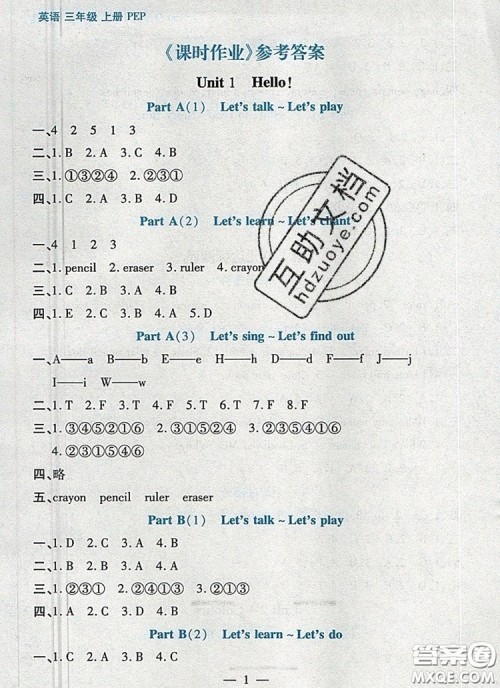 英语 三年级 上册 PEP
《课时作业》参考答案
Unit 1 Hello!
Part A(1) Let's talk ~ Let's play
一、4 2 5 1 3
二、1. B 2. A 3. C 4. B
三、1. ①③②④ 2. ②③①
四、1. C 2. B 3. A 4. D
Part A(2) Let's learn ~ Let's chant
一、4 1 2 3
二、1. pencil 2. eraser 3. ruler 4. crayon
三、1. C 2. C 3. B 4. C
四、1. E 2. C 3. B 4. A 5. D
Part A(3) Let's sing ~ Let's find out
一、A——a b——B E——e h——H D——d F——f J——j
I——i W——w
二、1. T 2. F 3. F 4. T 5. T 6. F 7. F 8. F
三、1. ③④⑤②①⑥ 2. ①③⑤②④ 3. ③④①②⑥⑤
4. ②③①⑤④⑥
四、略
五、crayon pencil ruler eraser
Part B(1) Let's talk ~ Let's play
一、1. D 2. C 3. A 4. B
二、1. B 2. C 3. A 4. B
三、1. ②③① 2. ②④①③ 3. ②③①
四、1. A 2. D 3. C 4. B
Part B(2) Let's learn ~ Let's do
一、1. C 2. B 3. A 4. B
— 1 —
互助文档
hdzuoye.com
答案圈
MXQE.COM